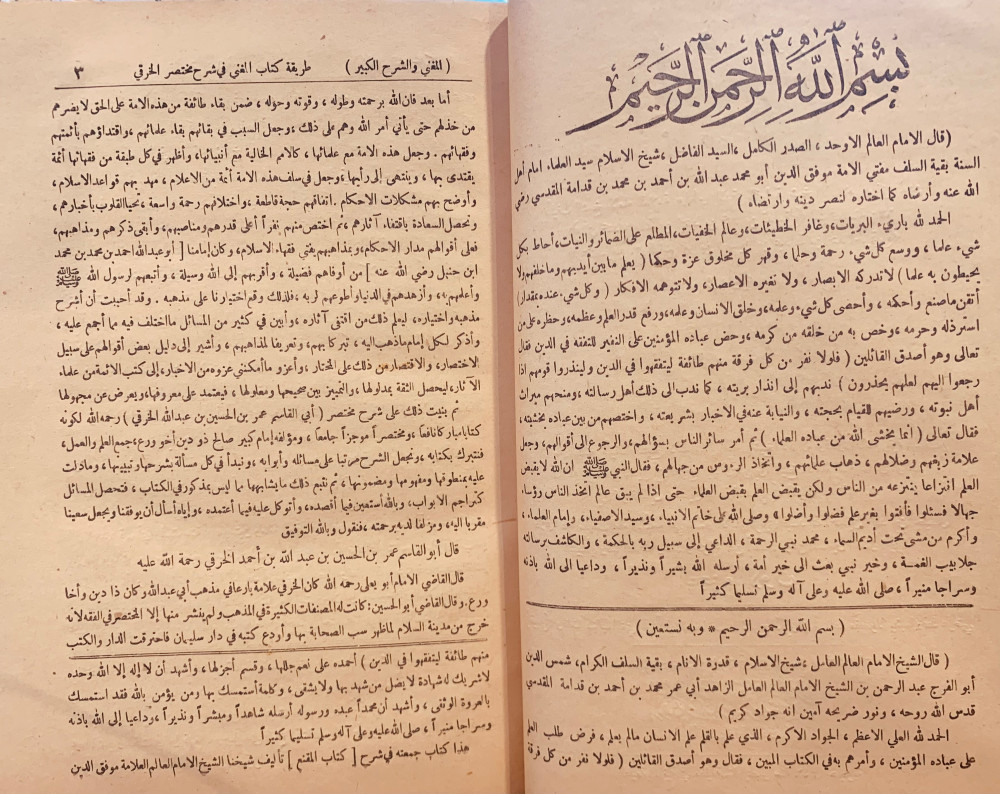 بسم الله الرحمن الرحيم
(قال الامام العالم الاوحد ، الصدر الكامل ،السيد الفاضل ،شيخ الاسلام سيد العلماء، امام أهل
السنة بقية السلف مفتي الامة موفق الدين أبو محمد عبد الله بن أحمد بن محمد بن قدامة المقدسي رضي
الله عنه وأرضاه كما اختاره لنصر دينه وارتضاه )
الحمد لله باريء البريات،وغافر الخطيئات،وعالم الخفيات،المطلع على الضمائر والنيات،أحاط بكل
شيء علما ، ووسع كل شيء رحمة وحلما، وقهر كل مخلوق عزة وحكما ( يعلم ما بين أيديهم وما خلفهم ولا
يحيطون به علما ) لا تدركه الابصار ، ولا تغيره الاعصار، ولا تتوهمه الافكار ( وكل شيء عنده بمقدار )
أتقن ما صنع وأحكمه ، وأحصى كل شيء وعلمه،وخلق الانسان وعلمه،ورفع قدر العلم وعظمه،وحظره على من
استرذله وحرمه ،وخص به من خلقه من كرمه ،وحض عباده المؤمنين على النفير للتفقه في الدين فقال
تعالى وهو أصدق القائلين ( فلولا نفر من كل فرقة منهم طائفة ليتفقهوا في الدين ولينذروا قومهم اذا
رجعوا اليهم لعلهم يحذرون ) ندبهم إلى انذار بريته ، كما ندب الى ذلك أهل رسالته ،ومنحهم ميراث
أهل نبوته ، ورضيهم للقيام بحجته ، والنيابة عنه في الاخبار بشريعته ، واختصهم من بين عباده بخشيته،
فقال تعالى ( انما يخشى الله من عباده العلماء ) ثم أمر سائر الناس بسؤالهم،والرجوع الى أقوالهم، وجعل
علامة زيغهم وضلالهم ، ذهاب علمائهم ، واتخاذ الرءوس من جهالهم ، فقال النبي ﷺ ان الله لا يقبض
العلم انتزاعا ينتزعه من الناس ولكن يقبض العلم بقبض العلماء حتى اذا لم يبق عالم اتخذ الناس رؤساء
جهالا فسئلوا فأفتوا بغير علم فضلوا وأضلوا» وصلى الله على خاتم الانبياء ، وسيد الاصفياء، وإمام العلماء ،
وأكرم من مشى تحت أديم السماء ، محمد نبي الرحمة ، الداعي إلى سبيل ربه بالحكمة ، والكاشف برسالته
جلابيب الغمة ، وخير نبي بعث الى خير أمة ، أرسله الله بشيراً ونذيراً ، وداعيا الى الله باذنه
وسراجا منيراً ، صلى الله عليه وعلى آله وسلم تسليما كثيراً
( بسم الله الرحمن الرحيم * وبه نستعين )
( قال الشيخ الامام العالم العامل ،شيخ الاسلام ، قدرة الانام ، بقية السلف الكرام، شمس الدين
أبو الفرج عبد الرحمن بن الشيخ الامام العالم العامل الزاهد أبي عمر محمد بن أحمد بن قدامة المقدسي
قدس الله روحه ، ونور ضريحه آمين انه جواد كريم )
الحمد لله العلي الاعظم ، الجواد الاكرم ، الذي علم بالقلم علم الانسان مالم يعلم ، فرض طلب العلم
على عباده المؤمنين ، وأمرهم به في الكتاب المبين ، فقال وهو أصدق القائلين ( فلولا نفر من كل فرقة
( المغني والشرح الكبير ) طريقة كتاب المغني في شرح مختصر الخرقي ٣
أما بعد فان الله برحمته وطوله ، وقوته وحوله ، ضمن بقاء طائفة من هذه الامة على الحق لا يضرهم
من خذلهم حتى يأتي أمر الله وهم على ذلك ،وجعل السبب في بقائهم بقاء علمائهم ،واقتداؤهم بأئمتهم
وفقهائهم . وجعل هذه الامة مع علمائها ،كالامم الخالية مع أنبيائها، وأظهر في كل طبقة من فقهائها أئمة
يقتدى بها ، وينتهى إلى رأيها،وجعل في سلف هذه الامة أئمة من الاعلام ، مهد بهم قواعد الاسلام ،
وأوضح بهم مشكلات الاحكام .اتفاقهم حجة قاطعة ، واختلافهم رحمة واسعة ،تحيا القلوب بأخبارهم ،
وتحصل السعادة باقتفاء آثارهم ،ثم اختص منهم نفراً أعلى قدرهم ومناصبهم، وأبقى ذكرهم ومذاهبهم،
فعلى أقوالهم مدار الاحكام،وبمذاهبهم يفتي فقهاء الاسلام، وكان إمامنا [ أبو عبد الله احمد بن محمد بن محمد
ابن حنبل رضي الله عنه ] من أوفاهم فضيلة ، وأقربهم إلى الله وسيلة ، وأتبعهم لرسول الله ﷺ
وأعلمهم به، وأزهدهم في الدنيا وأطوعهم لربه ،فلذلك وقع اختيارنا على مذهبه . وقد أحببت أن أشرح
مذهبه واختياره، ليعلم ذلك من اقتفى آثاره ، وأبين في كثير من المسائل ما اختلف فيه مما أجمع عليه ،
وأذكر لكل إمام ما ذهب اليه ، تبركا بهم ، وتعريفا لمذاهبهم ، وأشير إلى دليل بعض أقوالهم على سبيل
الاختصار، والاقتصار من ذلك على المختار ، وأعزو ما أمكنني عزوه من الاخبار، إلى كتب الائمة من علماء
الآثار، ليحصل الثقة بمدلولها، والتمييز بين صحيحها ومعلولها ، فيعتمد على معروفها، ويعرض عن مجهولها
ثم بنيت ذلك على شرح مختصر ( أبي القاسم عمر بن الحسين بن عبد الله الخرقي ) رحمه الله لكونه
كتابا مباركا نافعا، ومختصراً موجزاً جامعا ، ومؤلفه إمام كبير صالح ذو دين أخو ورع، جمع العلم والعمل،
فنتبرك بكتابه ،ونجعل الشرح مرتبا على مسائله وأبوابه ، ونبدأ في كل مسألة بشرحها وتبيينها ، وما دلت
عليه بمنطوقها ومفهومها ومضمونها ، ثم نتبع ذلك ما يشابهها مما ليس بمذكور في الكتاب ، فتحصل المسائل
كتراجم الابواب، وبالله أستعين فيما أقصده، وأتوكل عليه فيما أعتمده ، وإياه أسأل أن يوفقنا ويجعل سعينا
مقربا اليه، ومزلفا لديه برحمته ،فنقول وبالله التوفيق
قال أبو القاسم عمر بن الحسين بن عبد الله بن أحمد الخرقي رحمة الله عليه
قال القاضي الامام أبو يعلى رحمه الله كان الخرقي علامة بارعا في مذهب أبي عبد الله وكان ذا دين وأخا
ورع. وقال القاضي أبو الحسين: كانت له المصنفات الكثيرة في المذهب ولم ينتشر منها إلا المختصر في الفقه لأنه
خرج من مدينة السلام لما ظهر سب الصحابة بها وأودع كتبه في دار سليمان فاحترقت الدار والكتب
منهم طائفة ليتفقهوا في الدين ) أحمده على نعم جللها ، وقسم أجزلها ، وأشهد أن لا إله إلا الله وحده
لا شريك له شهادة لا يضل من شهد بها ولا يشقى ، وكلمة أستمسك بها ومن يؤمن بالله فقد استمسك
بالعروة الوثقى ، وأشهد أن محمداً عبده ورسوله أرسله شاهداً ومبشراً ونذيراً ، وداعيا إلى الله باذنه
وسراجا منيراً ، صلى الله عليه وعلى آله وسلم تسليما كثيراً
هذا كتاب جمعته في شرح [ كتاب المقنع ] تأليف شيخنا الشيخ الامام العالم العلامة موفق الدين